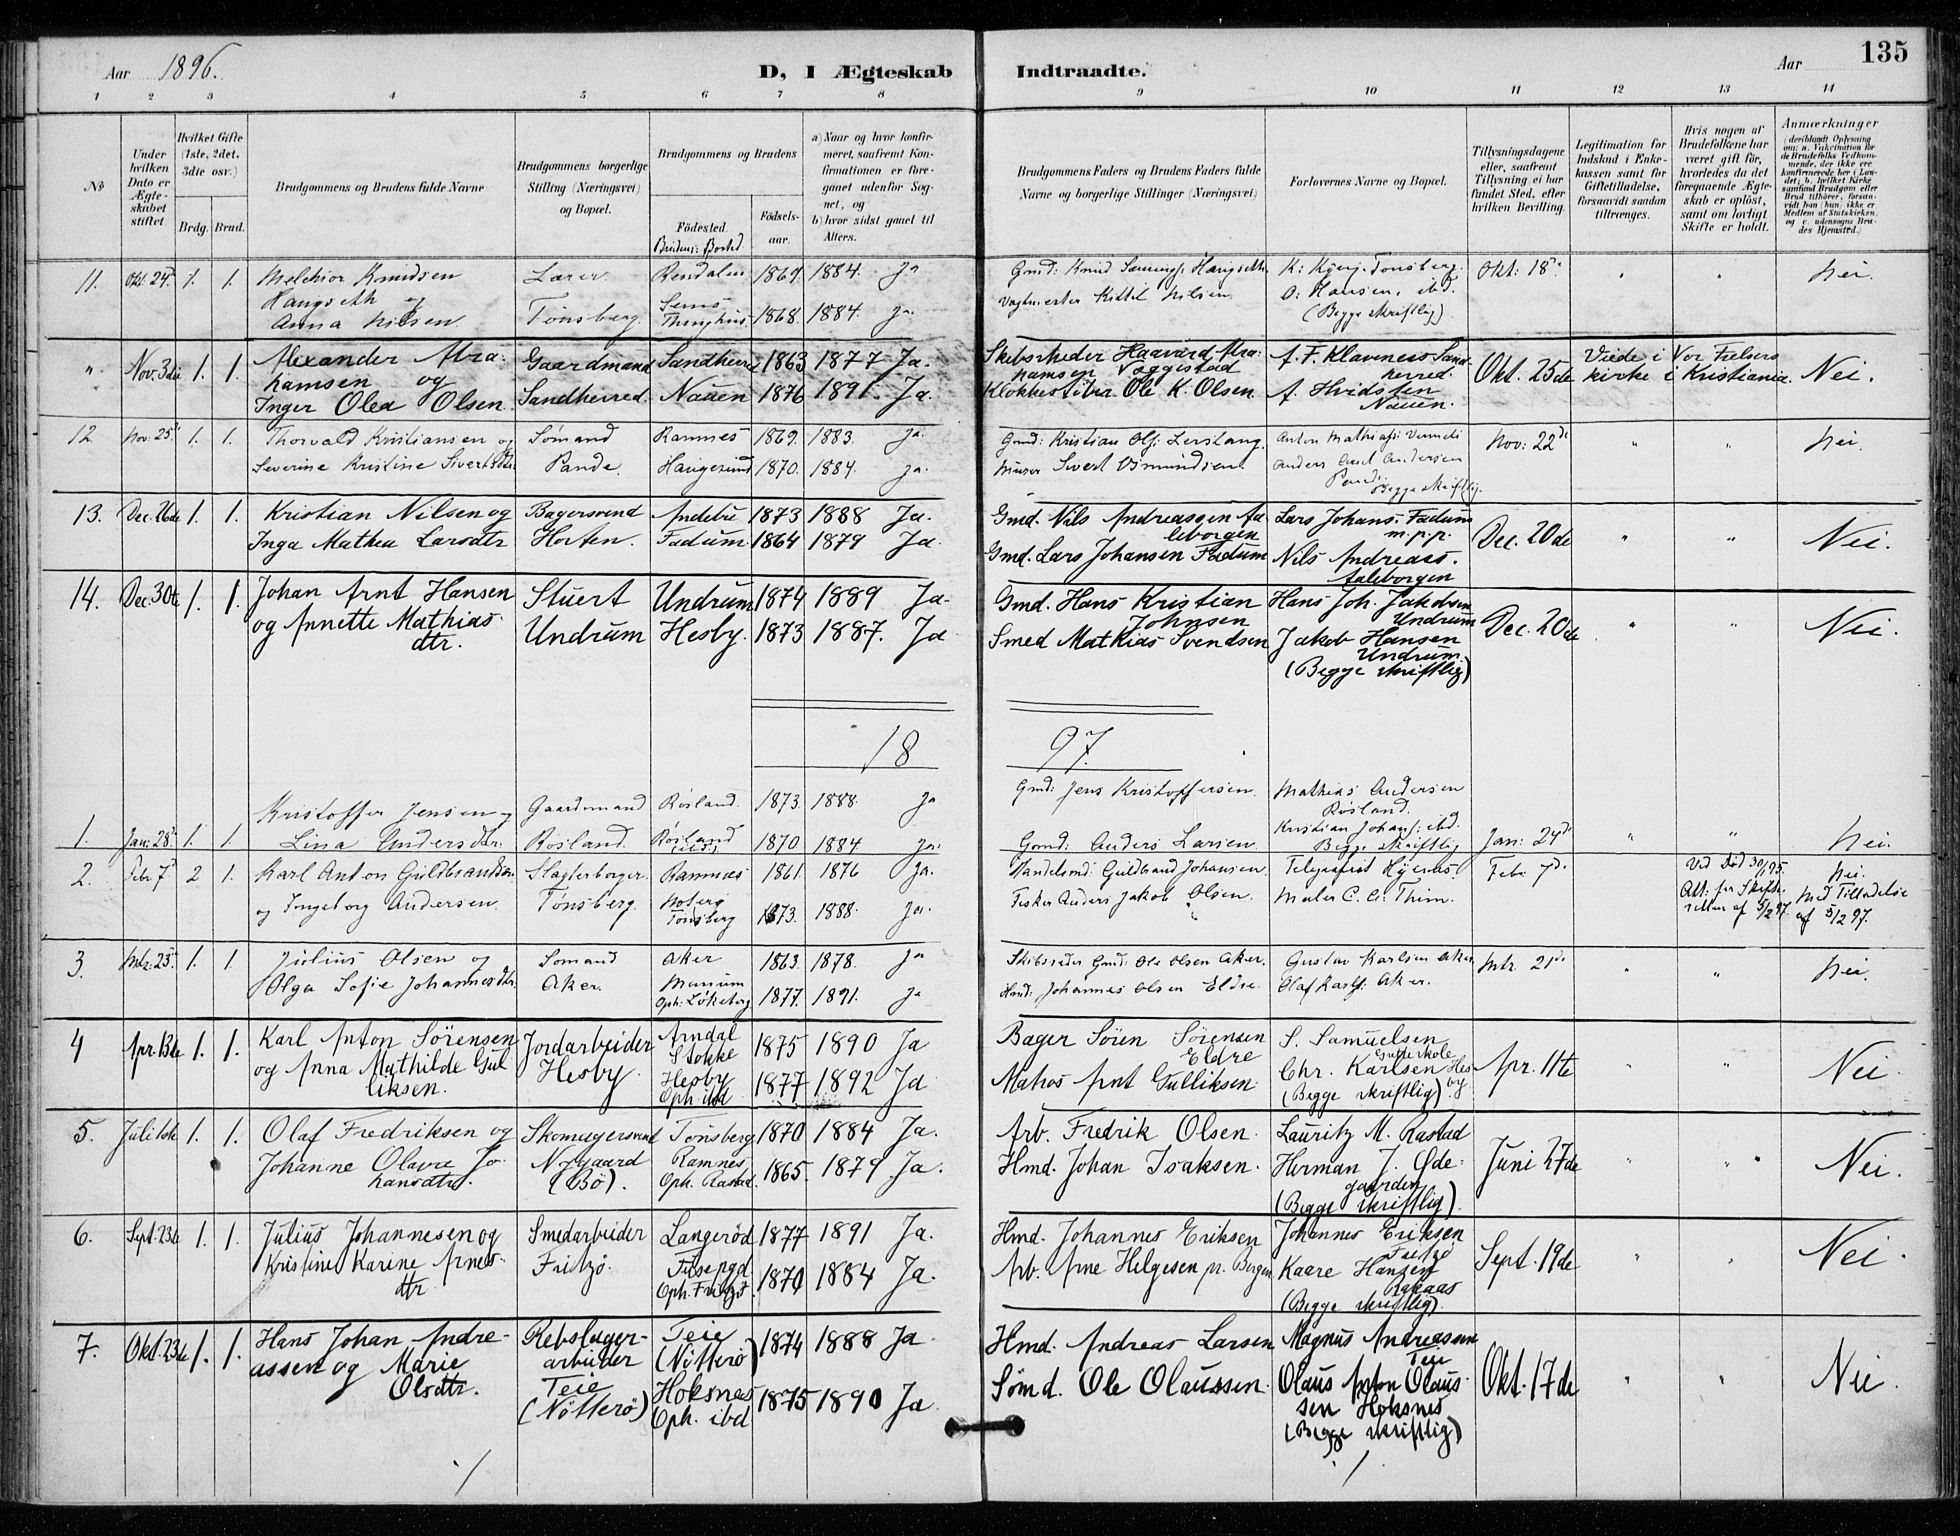 Aar 1896.
D, I Ægteskab Indtraadte.
Aar
135
1 2 3 4 5 6 7 8 9 10 11 12 13 14
No
Under hvilken Dato er Ægteskabet stiftet.
Hvilket Gifte (1ste, 2det, 3die osv.)
Brdg. Brud.
Brudgommens og Brudens fulde Navne
Brudgommens borgerlige Stilling (Næringsvei) og Bopæl.
Brudgommens og Brudens
Fødested.
Brudens: Bosted
Fødselsaar.
a) Naar og hvor konfirmeret, saafremt Konfirmationen er foregaaet udenfor Sognet, og
b) hvor sidst gaaet til Alters.
Brudgommens Faders og Brudens Faders fulde Navne og borgerlige Stillinger (Næringsvei)
Forlovernes Navne og Bopæl.
Tillysningsdagene eller, saafremt Tillysning ei har fundet Sted, efter hvilken Bevilling.
Legitimation for Indskud i Enkekassen samt for Giftetilladelse, forsaavidt saadan tiltrænges.
Hvis nogen af Brudefolkene har været gift før, hvorledes da det foregaaende Ægteskab er opløst, samt om lovligt Skifte er holdt.
Anmærkninger
(deriblandt Oplysning om: a. Vakcination for de Brudefolks Vedkommende, der ikke ere konfirmerede her i Landet; b. hvilket Kirkesamfund Brudgom eller Brud tilhører, forsavidt han (hun) ikke er Medlem af Statskirken; og c. udensogns Brudes Hjemsted.)
11. Okt. 24de 1. 1. Melchior Knudsen Lærer Rendalen 1869. 1884. Ja Gmd: Knud Hangseth K: Tønsberg. Okt: 18de " " Nei.
Hangseth og Sems Vognmester Kittil Nilsen O: Hansen, ibd.
Anna Nilsen Tønsberg Thinghus 1868. 1884. Ja. (Begge skriftlig)
" Nov. 3die 1. 1. Alexander Abra- Gaardmand Sandherred 1863 1877 Ja. Skibsrheder Haavard Abra- A. F. Klaveness Sand- Okt. 25de Viede i Vor Frelsers Nei.
hamsen og hamsen Vøggistad herred. kirke i Kristiania.
Inger Olea Olsen. Sandherred. Nauen 1876 1891. Ja. Klokkestøber Ole K. Olsen. A. Hvidsten
Nauen.
12. Nov: 25de 1. 1. Thorvald Kristiansen og Sømand Ramnes 1869. 1883. Ja. Gmd: Kristian Ols: Anton Mathias: Nov: 22de " " Nei.
Severine Kristine Sivertsdtr. Pande. Haugesund 1870. 1884. Ja. Murer Sivert Anders Andersen
Begge skriftlig.
13. Dec. 26de 1. 1. Kristian Nilsen og Bagersvend Andebu 1873 1888 Ja. Gmd. Nils Andreassen Aa- Lars Johans. Fadum Dec. 20de " " Nei.
leborgen m.p.p.
Inga Mathea Larsdtr. Horten. Fadum 1864 1879 Ja. Gmd. Lars Johansen Fadum Nils Andreass.
Aaleborgen
14. Dec. 30te 1. 1. Johan Arnt Hansen Stuert Undrum 1874 1889 Ja. Gmd. Hans Kristian Hans Joh. Jakobsen Dec. 20de " " Nei.
Johnsen Undrum
og Annette Mathias- Undrum Hesby. 1873 1887. Ja. Smed Mathias Svendsen Jakob Hansen
dtr. Undrum.
(Begge skriftlig)
18 97.
1. Jan: 28de 1. 1. Kristoffer Jensen og Gaardmand Røsland. 1873. 1888. Ja Gmd: Jens Kristoffersen. Mathias Andersen Jan: 24de " " Nei.
Røsland.
Lina Andersdtr. Røsland. Røsland 1870 1884 Ja. Gmd: Anders Larsen. Kristian Johans: ibd.
Begge skriftlig
2. Febr 7de 2 1. Karl Anton Guldbrandsen Slagterborger. Ramnes 1861. 1876 Ja. Handelsmd: Guldbrand Johansen. Telegrafist Febr. 7de Ved Død 30/95. Nei.
og Ingeborg Andersen. Tønsberg. Tønsberg 1873. 1888. Ja. Fisker Anders Jakob Olsen. Maler C. Thim. Att: fra Skifteretten af 5/2 97. Med Tilladelse af 5/2 97.
3. Mrz: 25. 1. 1. Julius Olsen og Sømand Aker 1863. 1878. Ja Skibsreder Gmd: Ole Olsen Aker. Gustav Karlsen Aker Mrz 21de " " Nei.
Olga Sofie Johannesdtr. Aker. Oph: Løkeberg 1877. 1891. Ja Hmd: Johannes Olsen Eldre. Olaf Karls: Aker.
4 Apr. 13de 1. 1. Karl Anton Sørensen Jordarbeider Arndal 1875 1890 Ja Bager Søren Sørensen S. Samuelsen Apr. 11te " " Nei.
Stokke Eldre
og Anna Mathilde Gul- Hesby. Hesby 1877 1892 Ja Matros Arnt Gulliksen Chr. Karlsen Hesby
liksen. Oph. ibd (Begge skriftlig)
5. Juli 1ste 1. 1. Olaf Fredriksen og Skomagersvend Tønsberg 1870 1884 Ja. Arb. Fredrik Olsen. Lauritz M. Rastad Juni 27de " " Nei.
Johanne Olava Jo- Nygaard Ramnes 1865. 1879. Ja. Hmd. Johan Isaksen. Herman J. Øde-
hansdtr. (Bø). Oph. Rastad. gaarden
(Begge skriftlig).
6. Sept. 23de 1. 1. Julius Johannesen og Smedarbeider Langerød 1877 1891 Ja. Hmd. Johannes Eriksen Johannes Eriksen Sept. 19de " " Nei.
Kristine Karine Arnes- Fritzø. 1870 1884 Ja. Arb. Arne Helgesen pr. Bergen Kaare Hansen
dtr. Oph. Fritzø. (Begge skriftlig).
7. Okt. 23de 1. 1. Hans Johan Andre- Rebslager- Teie 1874 1888 Ja Hmd. Andreas Larsen Magnus Andreassen Okt. 17de " " Nei.
assen og Marie arbeider (Nøtterø) Teie
Olsdtr. Teie Hoksnes 1875 1890 Ja Sømd. Ole Olaussen. Olaus Anton Olaus-
(Nøtterø) Oph. ibd sen Hoksnes
(Begge skriftlig)